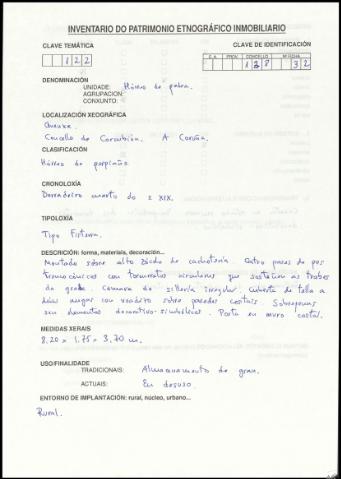 INVENTARIO DO PATRIMONIO ETNOGRÁFICO INMOBILIARIO
CLAVE TEMÁTICA
CLAVE DE IDENTIFICACIÓN
1 2 2
C.A. PROV. CONCELLO Nº FICHA
1 2 8 3 2
DENOMINACIÓN
UNIDADE: Hórreo de pedra.
AGRUPACION:
CONXUNTO:
LOCALIZACIÓN XEOGRÁFICA
Concello de Corcubión. A Coruña.
CLASIFICACIÓN
Hórreo de perpiaño
CRONOLOXÍA
Derradeiro cuarto do s XIX.
TIPOLOXÍA
Tipo Fisterra.
DESCRICIÓN: forma, materiais, decoración...
Montado sobre alto de cachotería. Catro pares de pes
troncocónicos con tornarratos circulares que sosteñen as trabes
da grade. Cámara de sillería irregular. Cuberta de tella a
dúas augas con sobre paredes costais. Sobrepenas
sen elementos decorativo-simbólicos. Porta en muro costal.
MEDIDAS XERAIS
8.20 x 1.75 x 3.70 m.
USO/FINALIDADE
TRADICIONAIS: Almacenamento de gran.
ACTUAIS: En desuso.
ENTORNO DE IMPLANTACIÓN: rural, núcleo, urbano...
Rural.